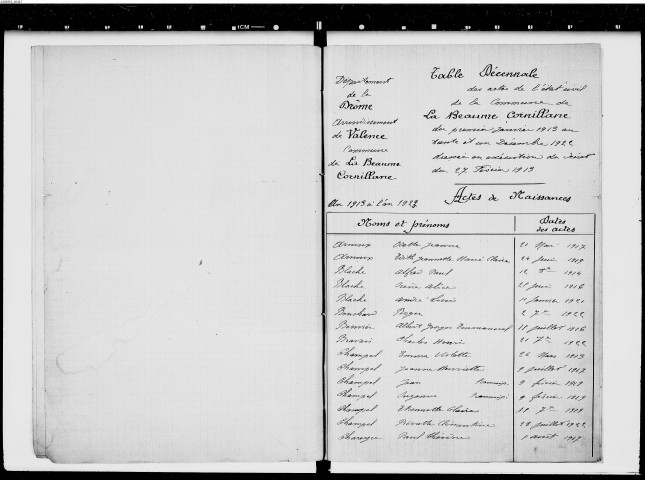 Département
de la
Drôme
Arrondissement
de Valence
Commune
de La Beaume
Cornillane
An 1913 à l'an 1922
Table Décennale
des actes de l'état civil
de la Commune de
La Beaume Cornillane
du premier janvier 1913 au
trente et un Décembre 1922
dressée en exécution du décret
du 27 Février 1913
Actes de Naissances
Noms et prénoms Dates des actes
Arnoux Jeanne 21 Mai 1917
Arnoux Edith Jeannette Marie Claire 24 juin 1919
Blache Alfred Paul 1914
Blache Alice 21 juin 1916
Blache André 11 janvier 1921
Bouchard Roger 2 7bre 1922
Albert Georges Emmanuel 18 juillet 1916
Charles Henri 21 7bre 1922
Champel Emma Violette 26 Mars 1913
Champel Jeanne Henriette 9 juillet 1917
Champel Jean Jumeaux 9 février 1919
Champel Suzanne Jumeaux 9 février 1919
Champel Claire 7bre 1919
Champel Clémentine 28 juillet 1922
Paul août 1917